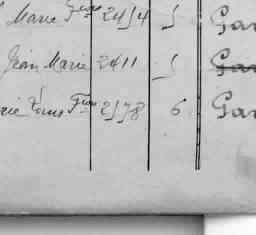 Marie Fçois 2454 5 Gar
Jean Marie 2411 5 Gar
rie Louis Fçois 2578 6 Gar